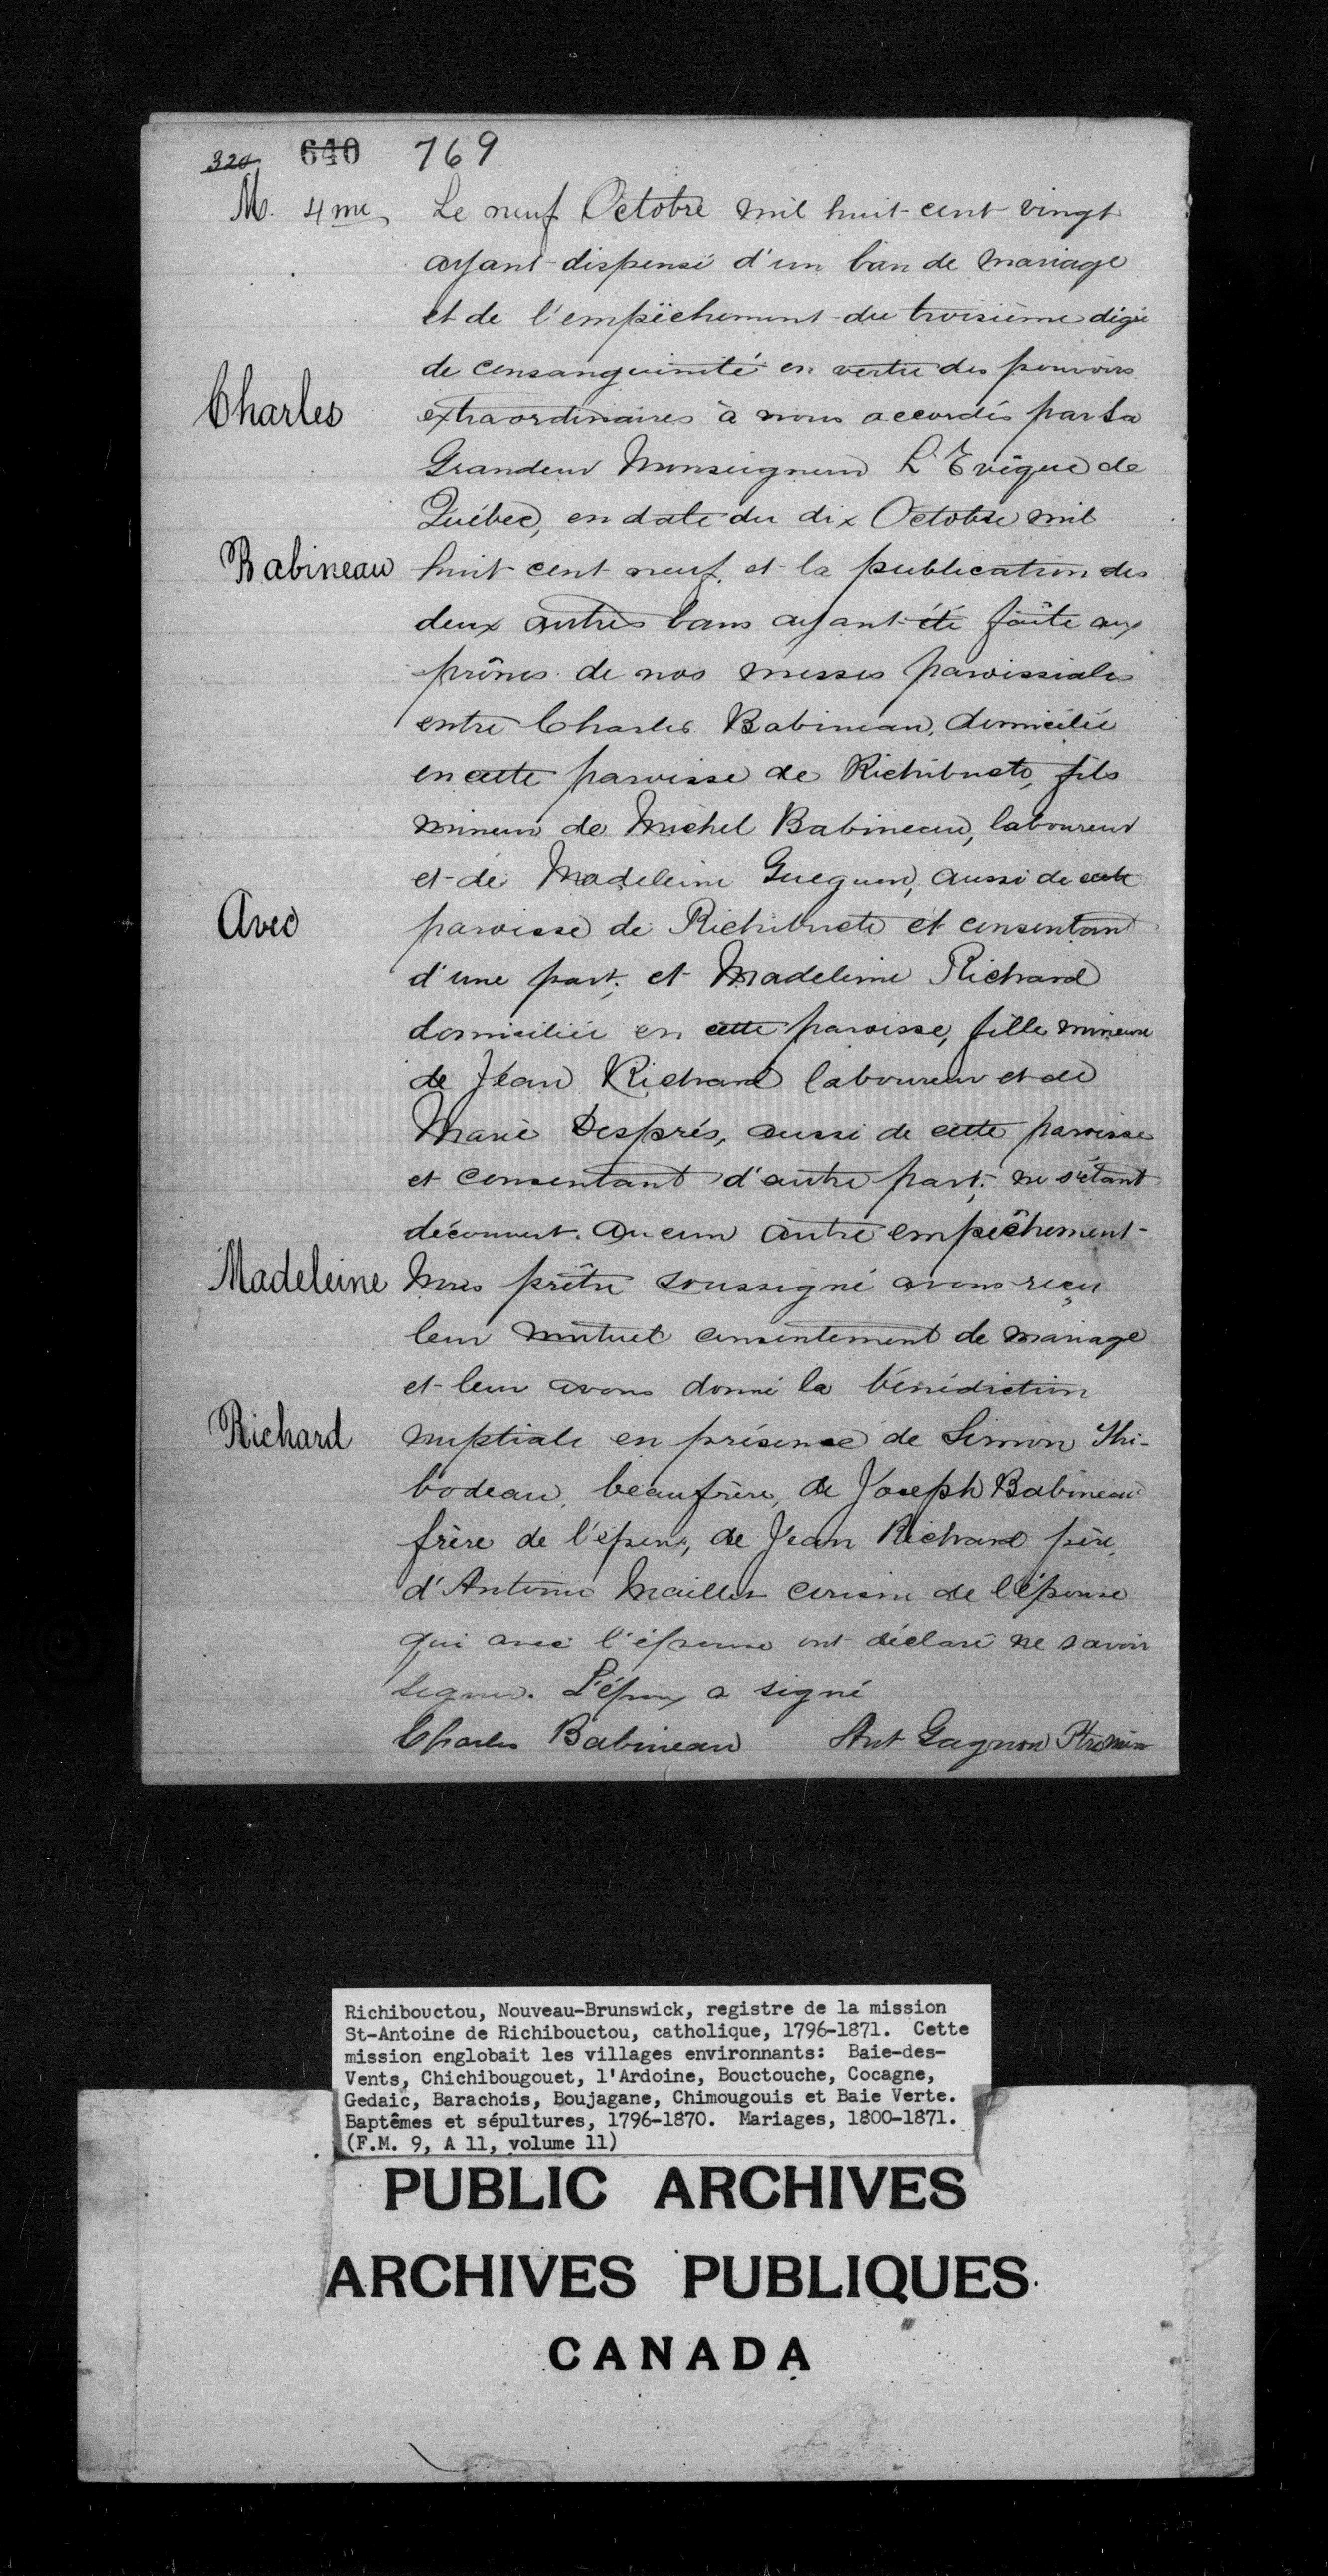 320 640 769
M. 4me Le neuf Octobre mil huit-cent vingt
ayant dispensé d'un ban de mariage
et de l'empêchement du troisième dégré
de consanguinité en vertu des pouvoirs
Charles extraordinaires à nous accordés par Sa
Grandeur Monseigneur L'Evêque de
Québec, en date du dix Octobre mil
Babineau huit cent neuf, et la publication des
deux autres bans ayant été faîte aux
prônes de nos messes paroissiales
entre Charles Babineau, domicilié
en cette paroisse de Richibucto, fils
mineur de Michel Babineau, laboureur
et de Madeleine Gueguen, aussi de cette
Avec paroisse de Richibucto et consentant
d'une part; et Madeleine Richard
domiciliée en cette paroisse, fille mineure
de Jean Richard laboureur et de
Marie Després, aussi de cette paroisse
et consentant d'autre part; ne s'étant
découvert aucun autre empêchement
Madeleine Nous prêtre soussigné avons reçu
leur mutuel consentement de mariage
et leur avons donné la bénédiction
Richard nuptiale en présence de Simon Thi-
bodeau, beaufrère, de Joseph Babineau
frère de l'époux, de Jean Richard père,
d'Antoine Maillet cousin de l'épouse
qui avec l'épouse ont déclaré ne savoir
signer. L'époux a signé
Charles Babineau Ant Gagnon Ptre Miss
Richibouctou, Nouveau-Brunswick, registre de la mission
St-Antoine de Richibouctou, catholique, 1796-1871. Cette
mission englobait les villages environnants: Baie-des-
Vents, Chichibougouet, l'Ardoine, Bouctouche, Cocagne,
Gedaic, Barachois, Boujagane, Chimougouis et Baie Verte.
Baptêmes et sépultures, 1796-1870. Mariages, 1800-1871.
(F.M. 9, A 11, volume 11)
PUBLIC ARCHIVES
ARCHIVES PUBLIQUES
CANADA